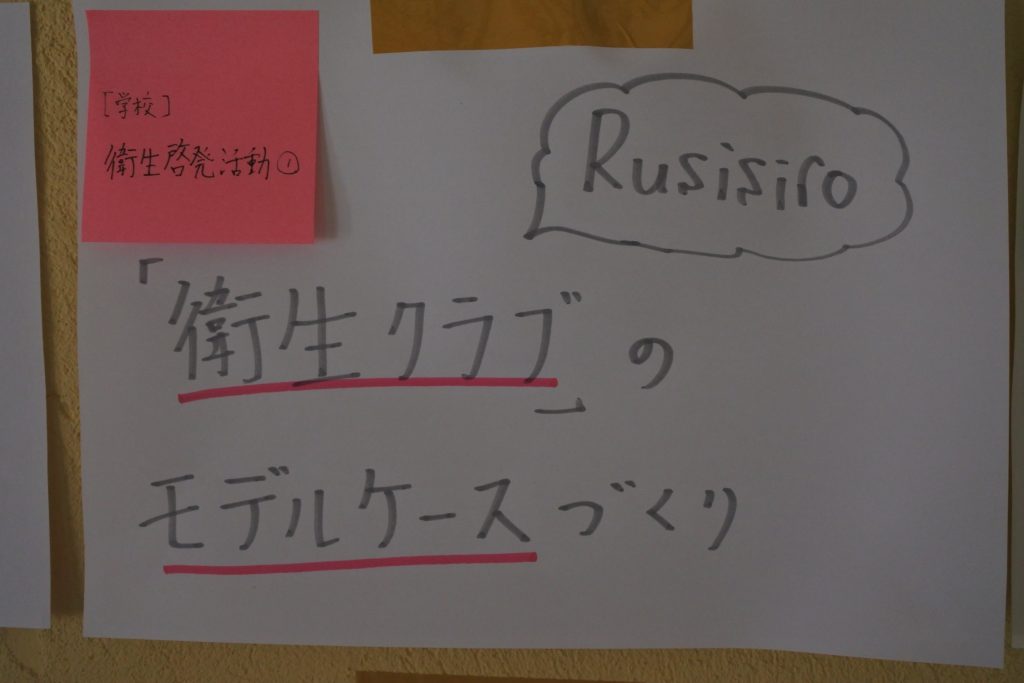 [学校]
衛生啓発活動①
Rusisiro
「衛生クラブ」の
モデルケースづくり